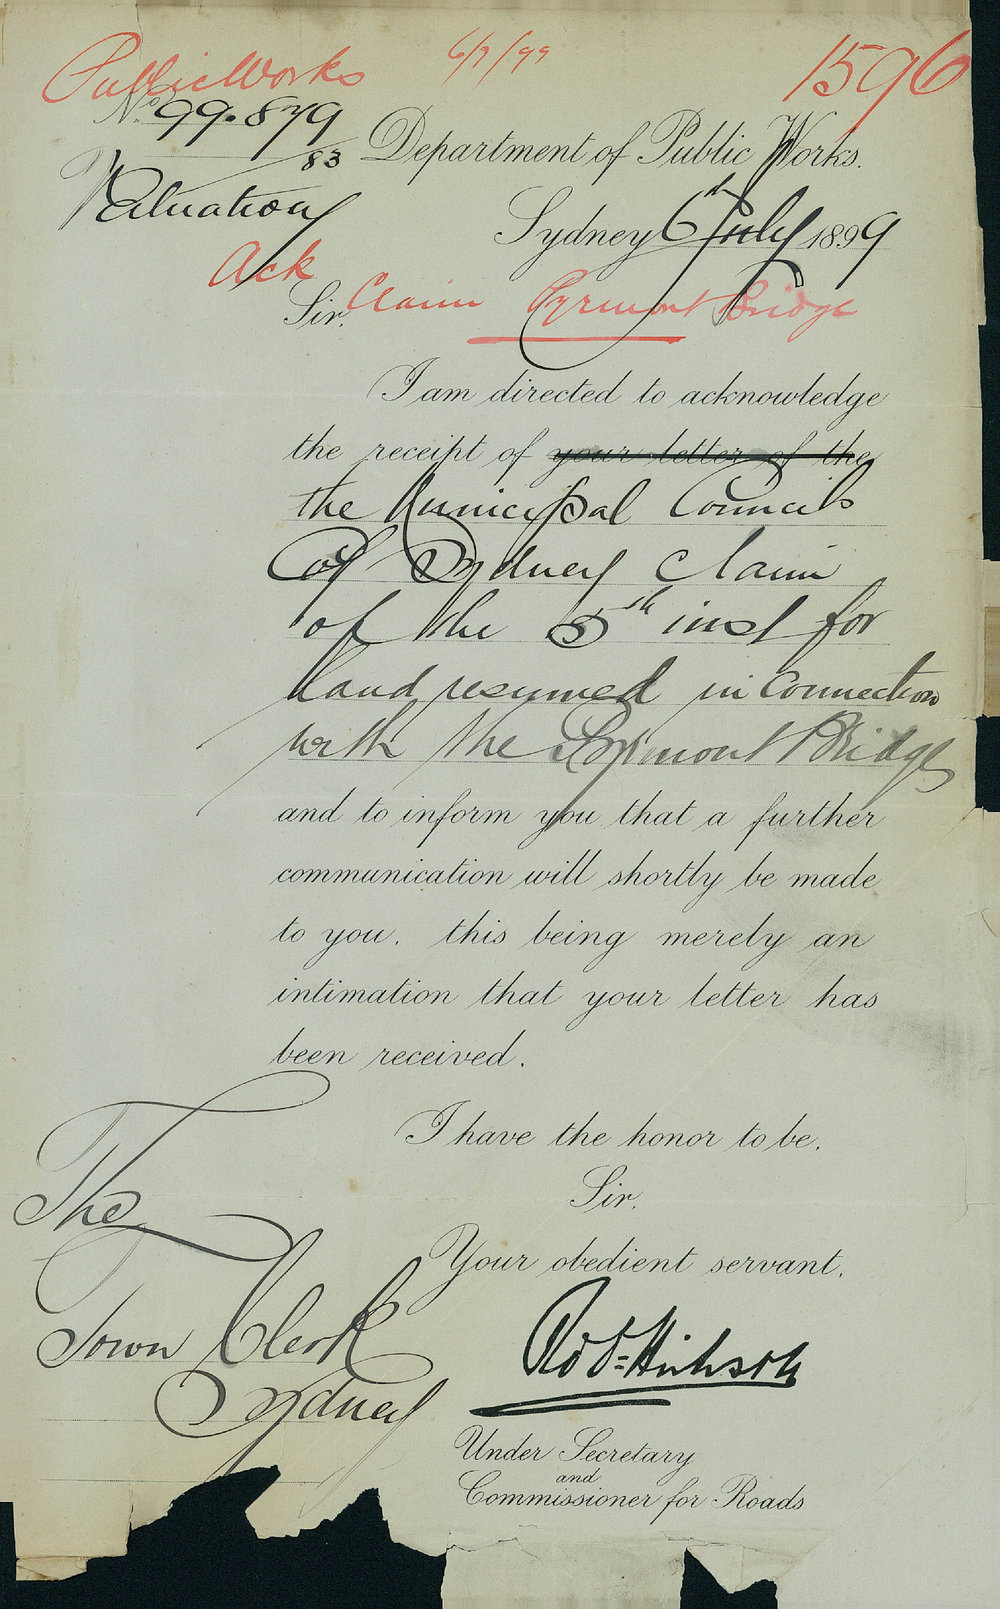 Public Works 6/7/99 1596
No. 99.879
/83 Department of Public Works.
Valuation
Sydney 6th July 1899
Ack
Sir, Claim Pyrmont Bridge
I am directed to acknowledge
the receipt of your letter of the
the Municipal Councils
of Sydney claim
of the 5th inst for
land resumed in connection
with the Pyrmont Bridge
and to inform you that a further
communication will shortly be made
to you, this being merely an
intimation that your letter has
been received.
I have the honor to be,
Sir,
The
Your obedient servant,
Town Clerk
Robt Hickson
Sydney
Under Secretary
and
Commissioner for Roads